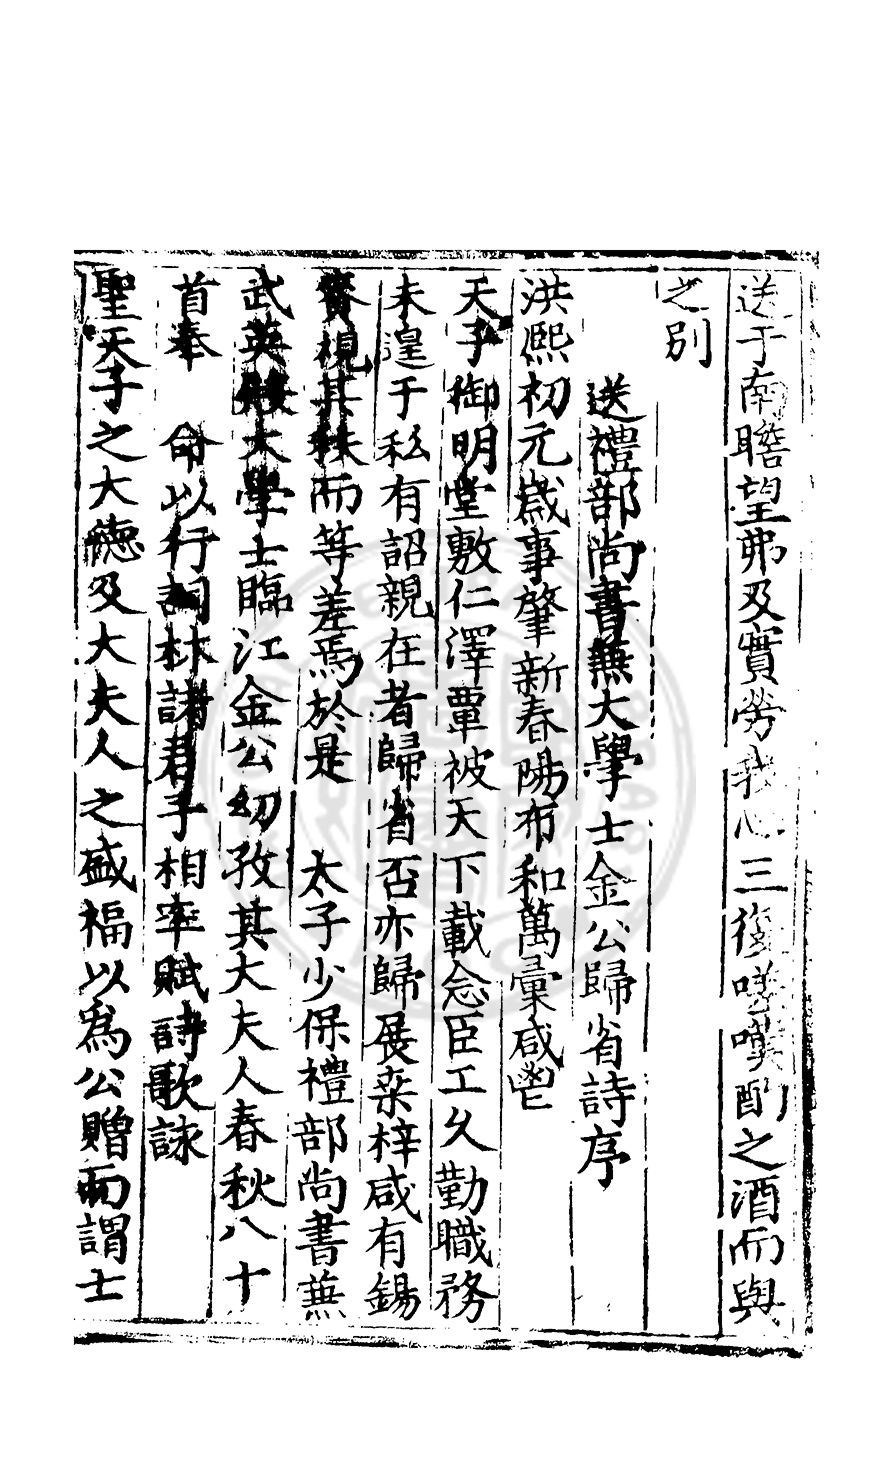 送于南瞻望弗及實勞我心三復嗟嘆酌之酒而與
之別
送禮部尚書兼大學士金公歸省詩序
洪熈初元歲事肇新春陽布和萬彚咸鬯
天子御明堂敷仁澤覃被天下載念臣工久勤職務
未遑于私有詔親在者歸省否亦歸展桒梓咸有錫
賚視其秩而等差焉於是　太子少保禮部尚書兼
武英殿大學士臨江金公幼孜其大夫人春秋八十
首奉　命以行詞林諸君子相率賦詩歌詠
聖天子之大德及大夫人之盛福以爲公贈而謂士